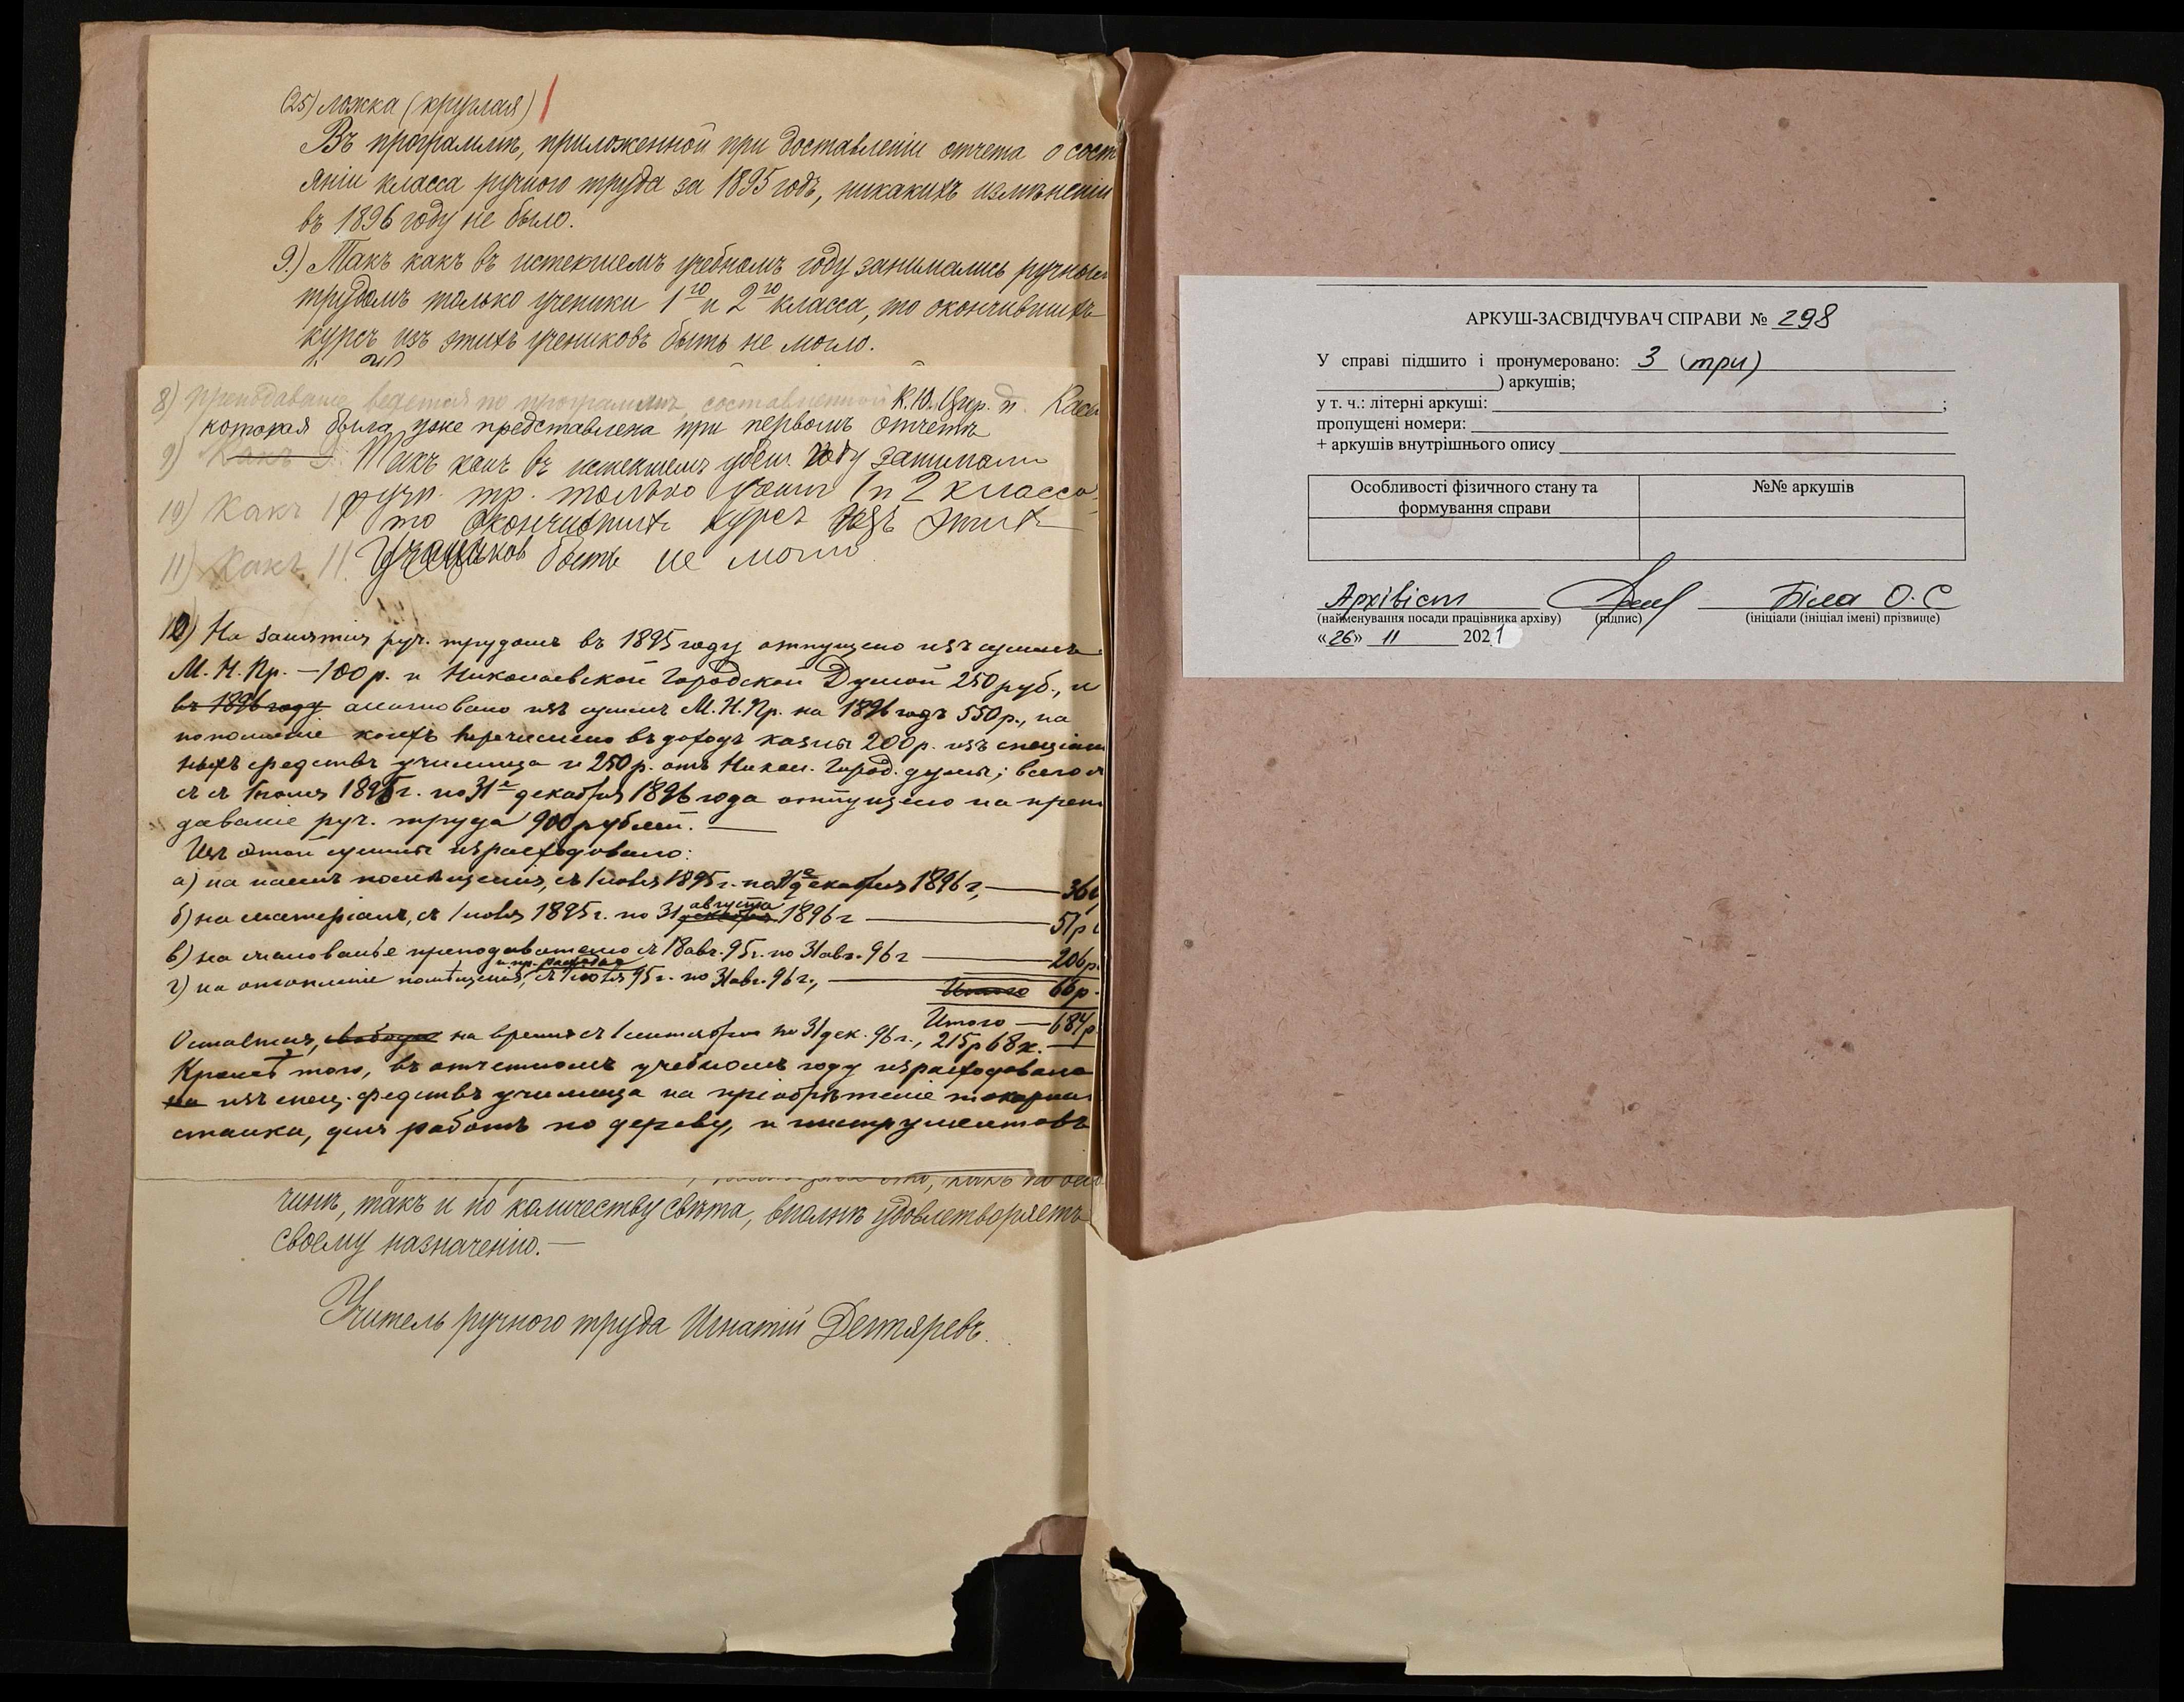 (25) ложка (круглая)
Въ программѣ, приложенной при доставленіи отчета о сост
яніи класса ручного труда за 1895 годъ, никакихъ измѣненій
въ 1896 году не было.
9.) Такъ какъ въ истекшемъ учебномъ году занимались ручным
трудомъ только ученики 1го и 2го класса, то окончившихъ
курсъ изъ этихъ учениковъ быть не могло.
8) преподаваніе ведется по программѣ, составленной К.Ю. Цир. п.
которая была уже представлена при первомъ отчетѣ
9) Такъ какъ въ истекшемъ учебн. году занимали
10) Какъ 10 ручн. тр. только учен. 1 и 2 класса,
то окончившихъ курсъ изъ этихъ
11) Какъ 11. Учениковъ быть не могло
12) На занятія руч. трудомъ въ 1895 году отпущено изъ суммъ
М. Н. Пр. — 100 р. и Николаевской Городской Думой 250 руб., и
въ 1896 году ассигновано изъ суммъ М. Н. Пр. на 1896 годъ 550 р., на
пополненіе коихъ перечислено въ доходъ казны 200 р. изъ спеціал
ныхъ средствъ училища и 250 р. отъ Никол. Город. думы; всего
съ 1 1895 г. по 31е декабря 1896 года отпущено на преп
даваніе руч. труда 900 рублей. —
Изъ этой суммы израсходовано:
а) на наемъ помѣщенія, съ 1 1895 г. по 31е декабря 1896 г., — 36
б) на матеріалъ, съ 1 1895 г. по 31 декабря августа 1896 г — 51 р
в) на преподавателю съ 18 авг. 95 г. по 31 авг. 96 г — 206 р.
г) на отопленіе помѣщенія, и пр. расходы съ 1 95 г. по 31 авг. 96 г., — Итого 66 р.
Итого — 684 р.
Остатокъ, свободн на время съ 1 сентября по 31 дек. 96 г., 215 р 68 к. —
Кромѣ того, въ отчетномъ учебномъ году израсходовано
на изъ спец. средствъ училища на пріобрѣтеніе токарна
станка, для работъ по дереву, и инструментовъ
чинѣ, такъ и по количеству свѣта, вполнѣ удовлетворяетъ
своему назначенію. —
Учитель ручного труда Игнатій Дегтяревъ.
АРКУШ-ЗАСВІДЧУВАЧ СПРАВИ № 298
У справі підшито і пронумеровано: 3 (три)
) аркушів;
у т. ч.: літерні аркуші: ;
пропущені номери:
+ аркушів внутрішнього опису
Особливості фізичного стану та формування справи
№№ аркушів
Архівіст Біла О. С
(найменування посади працівника архіву) (підпис) (ініціали (ініціал імені) прізвище)
«26» 11 2021